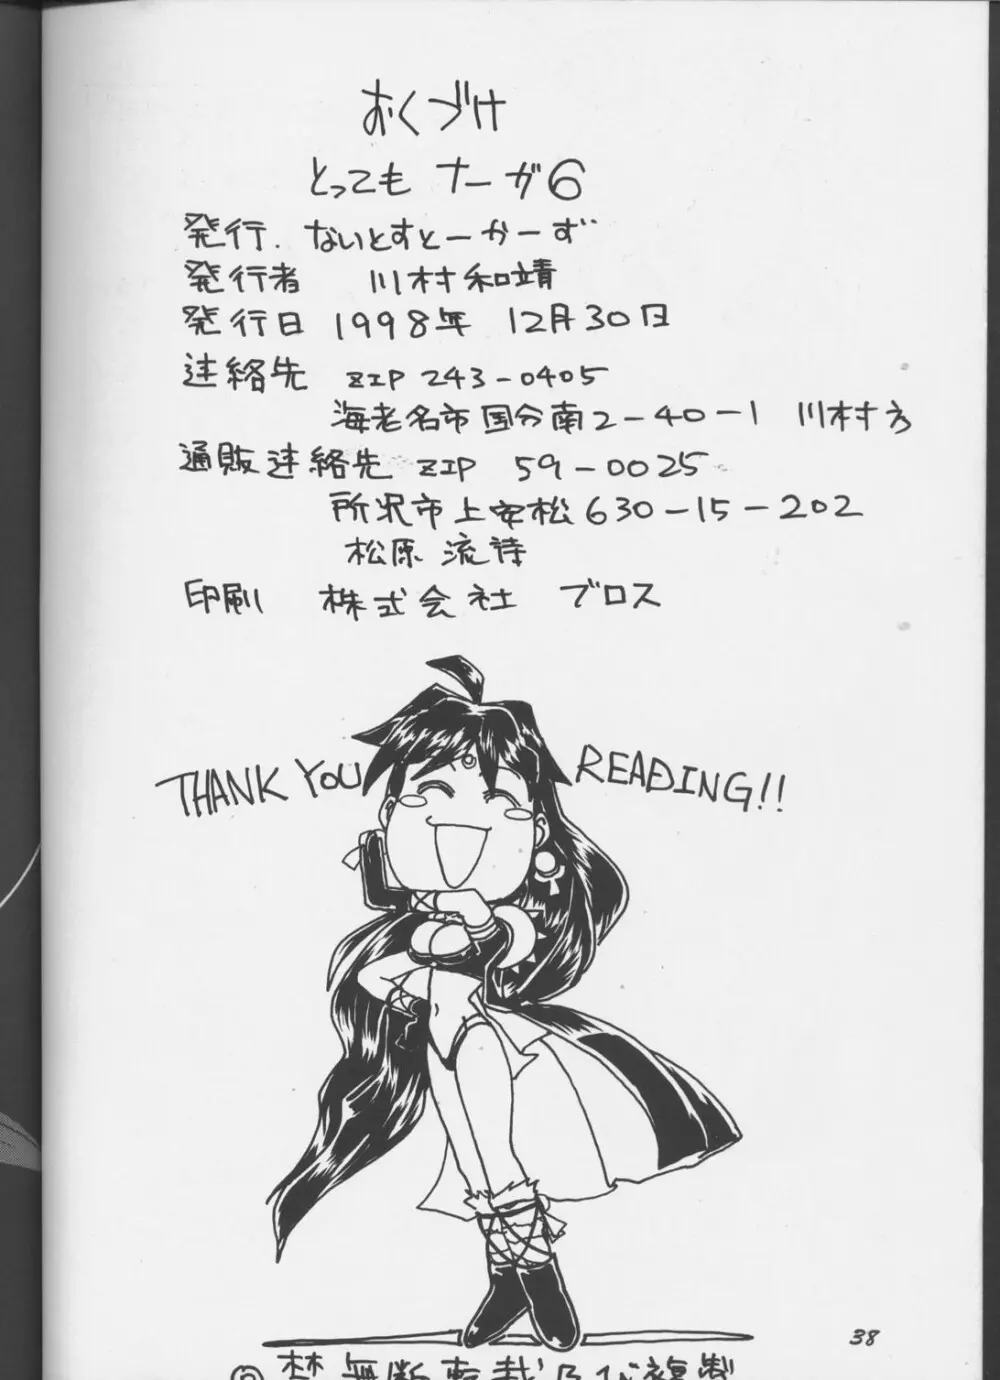 おくづけ
とっても ナーガ6
発行. ないとすとーかーず
発行者 川村和靖
発行日 1998年 12月30日
連絡先 ZIP 243-0405
海老名市国分南2-40-1 川村方
通販連絡先 ZIP 59-0025
所沢市上安松630-15-202
松原 流詩
印刷 株式会社 ブロス
THANK YOU READING!!
38
禁 無断転載及び複製